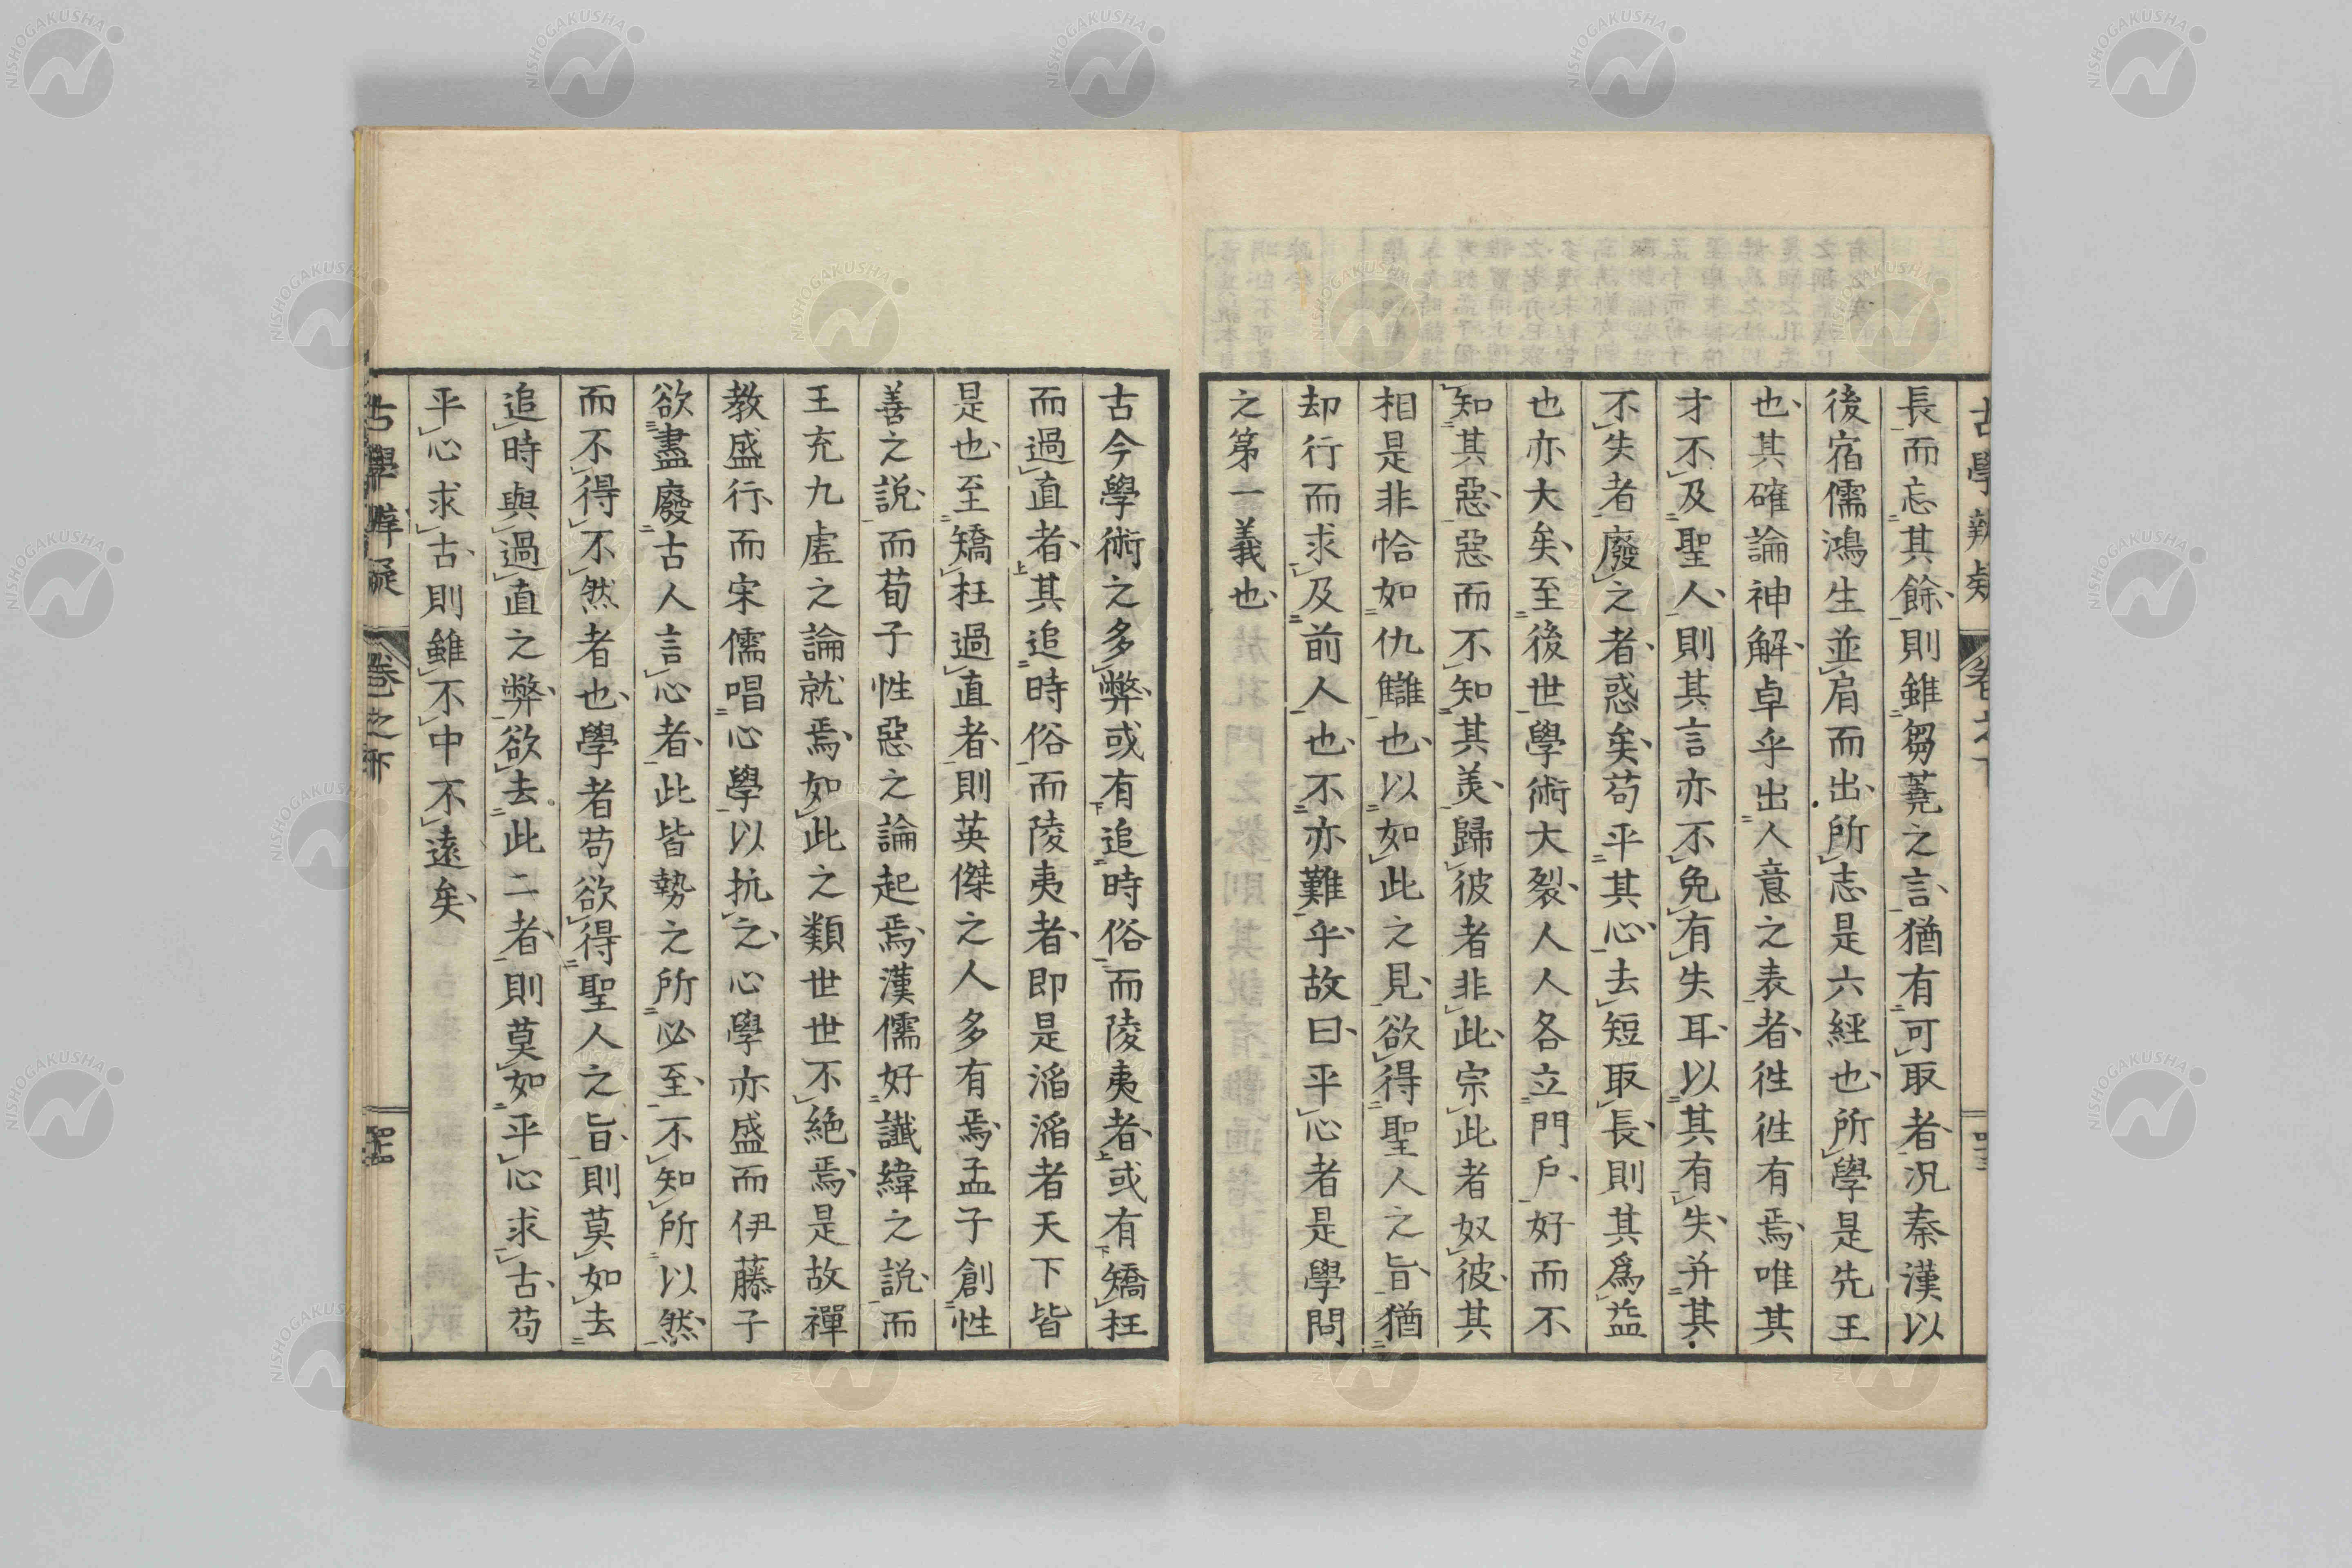 長而忘其餘則雖芻蕘之言猶有可取者況秦漢以
後宿儒鴻生並肩而出所志是六經也所學是先王
也其確論神解卓乎出人意之表者徃徃有焉唯其
才不及聖人則其言亦不免有失耳以其有失并其
不失者廢之者惑矣苟平其心去短取長則其爲益
也亦大矣至後世學術大裂人人各立門戶好而不
知其惡惡而不知其美歸彼者非此宗此者奴彼其
相是非恰如仇讎也以如此之見欲得聖人之旨猶
却行而求及前人也不亦難乎故曰平心者是學問
之第一義也
古今學術之多弊或有追時俗而陵夷者或有矯枉
而過直者其追時俗而陵夷者即是滔滔者天下皆
是也至矯枉過直者則英傑之人多有焉孟子創性
善之說而荀子性惡之論起焉漢儒好讖緯之說而
王充九虛之論就焉如此之類世世不絕焉是故禪
教盛行而宋儒唱心學以抗之心學亦盛而伊藤子
欲盡廢古人言心者此皆勢之所必至不知所以然
而不得不然者也學者苟欲得聖人之旨則莫如去
追時與過直之弊欲去此二者則莫如平心求古苟
平心求古則雖不中不遠矣
古學辨疑
卷之下
NISHOGAKUSHA